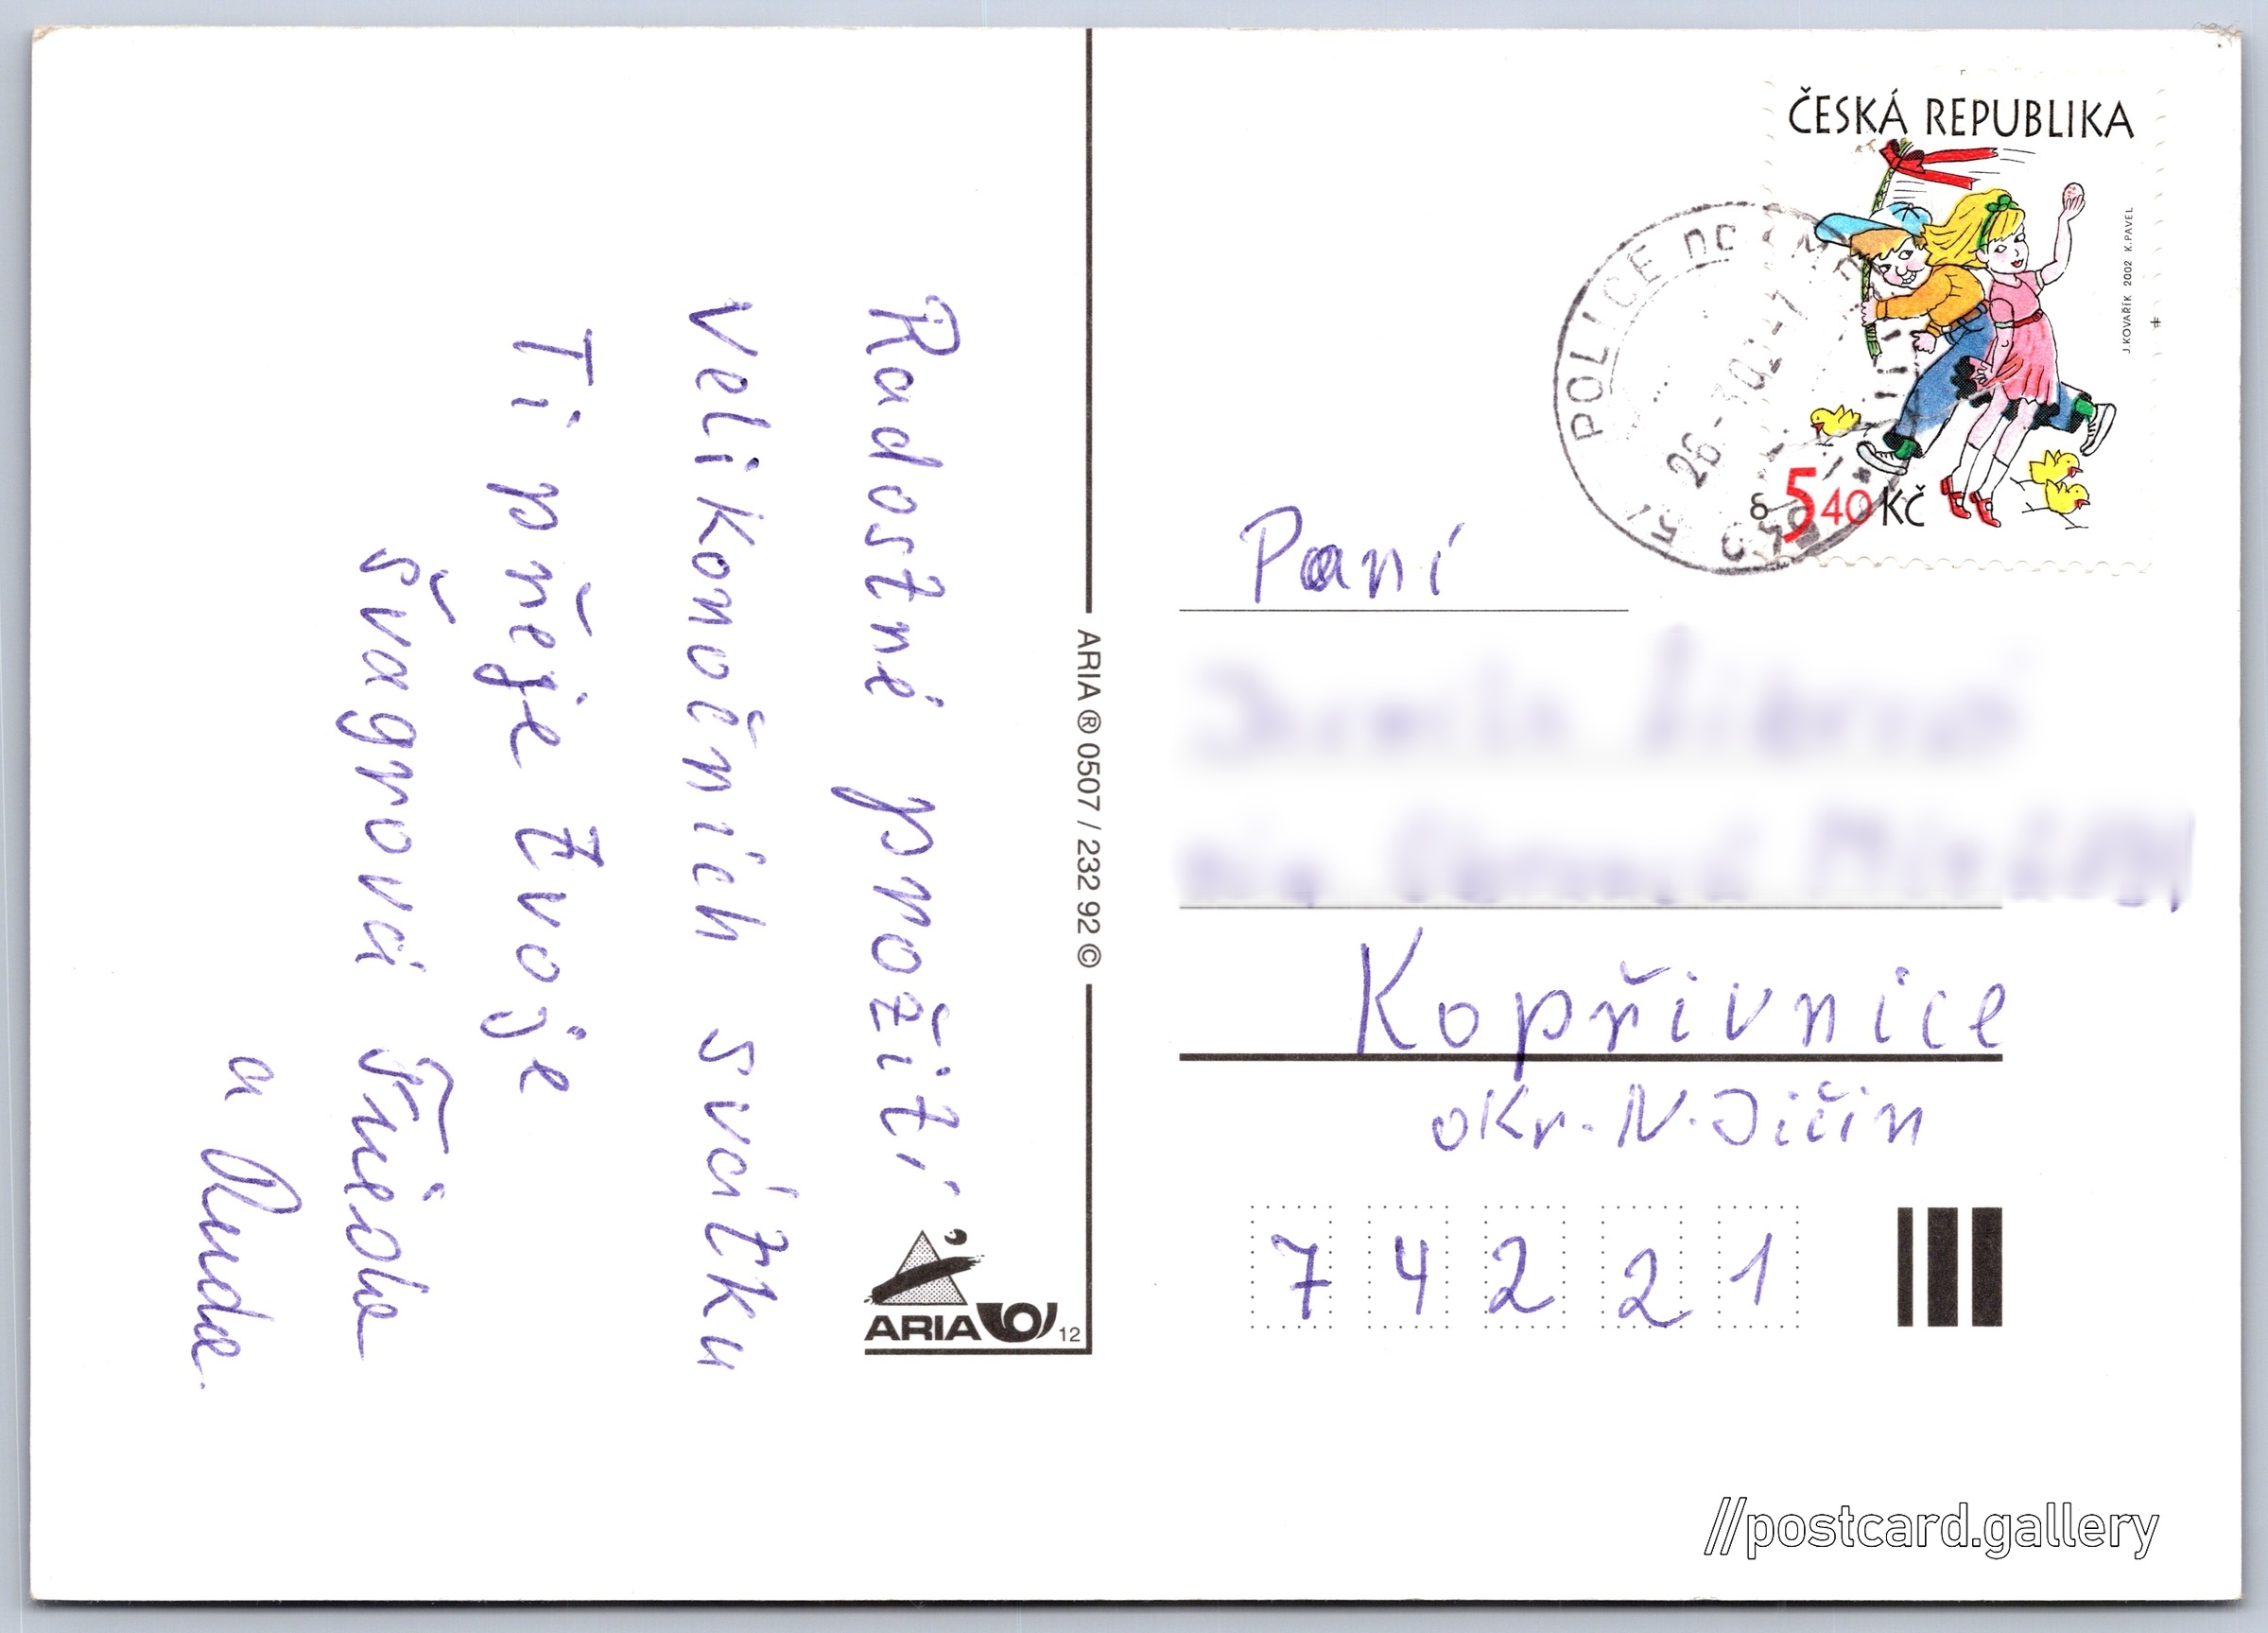 Radostné prožití
Velikonočních svátku
Ti přeje tvoje
švagrová Frieda
a Ruda.
ARIA ® 0507 / 232 92 ©
ARIA
12
ČESKÁ REPUBLIKA
J.KOVAŘÍK 2002 K.PAVEL
5 40 Kč
POLICE
26
Paní
Kopřivnice
okr. N. Jičín
7 4 2 2 1
//postcard.gallery